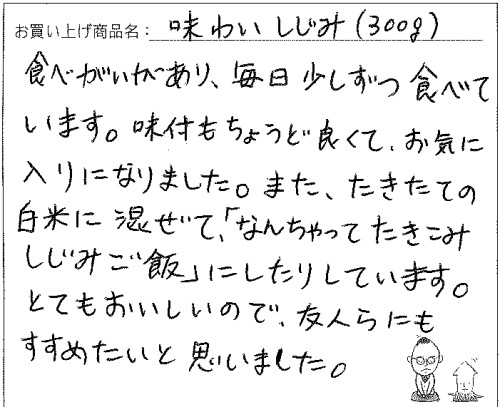 お買い上げ商品名： 味わい しじみ（300g）
食べがいがあり、毎日少しずつ食べて
います。味付もちょうど良くて、お気に
入りになりました。また、たきたての
白米に混ぜて、「なんちゃってたきこみ
しじみご飯」にしたりしています。
とてもおいしいので、友人らにも
すすめたいと思いました。